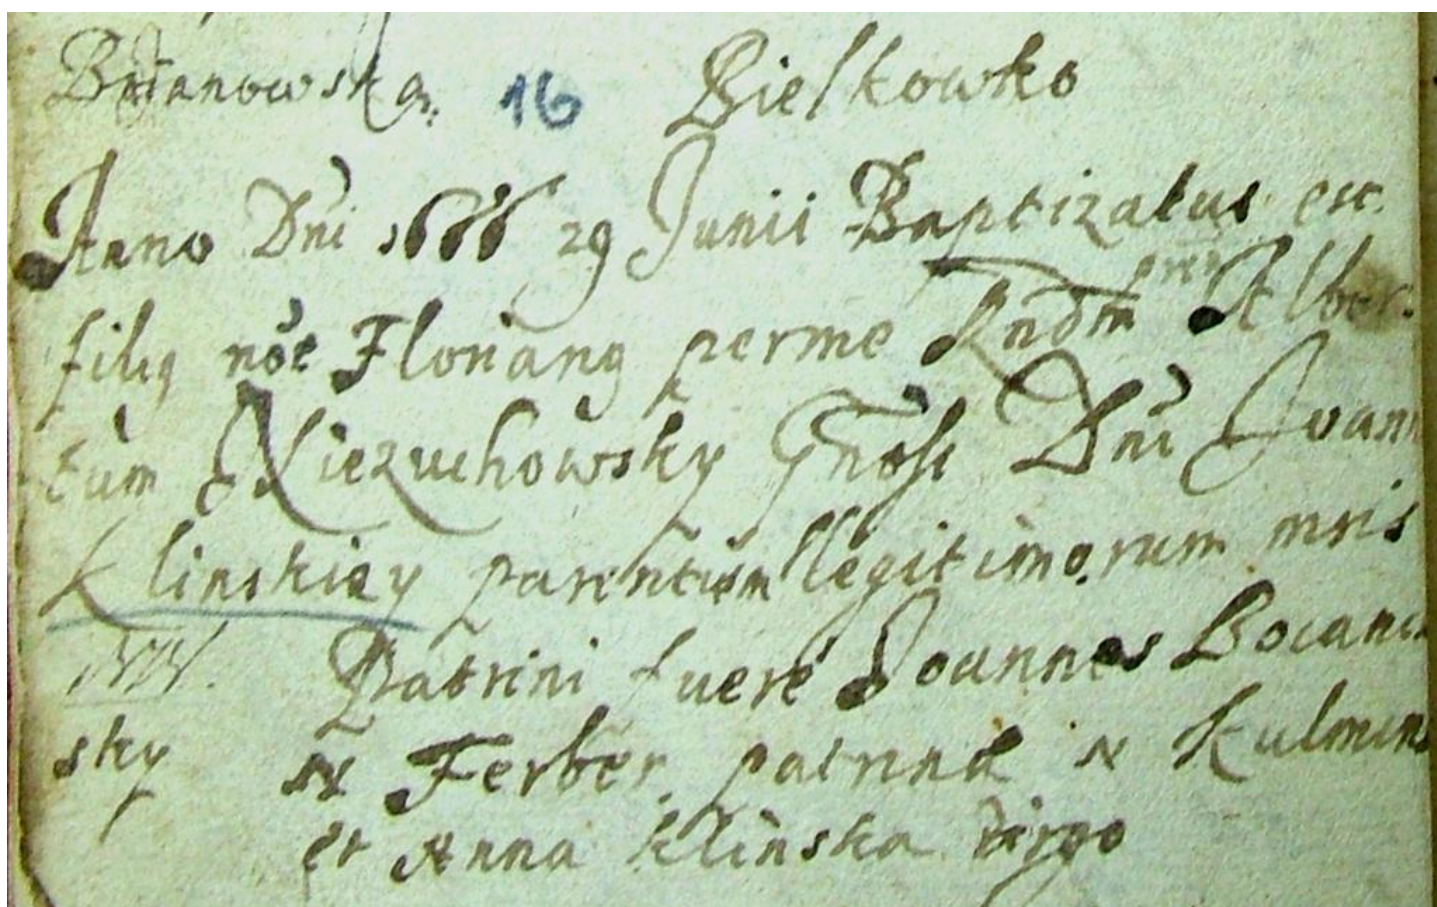 16 Bielkowko
Anno Dni 1666 29 Junii Baptizatus est
filiq nõe Florianq per me Rndm Alber-
tum Niezuchowsky Gnosi Dni Joan
Klinskiey parentum legitimorum mris
NN. Patrini fuere Joannes
sky N Ferber, patrina N Kulmins
et Anna Klinska virgo